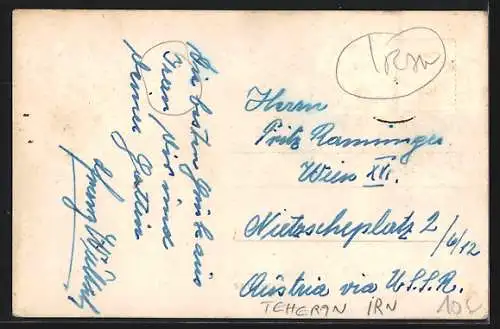 Die besten Grüße aus
Iran Dir und
Deiner Gattin
Iran
Herrn
Fritz Raminger
Wien XVI.
Nietzscheplatz 2/6/12
Austria via U.S.S.R.
TEHERAN IRN